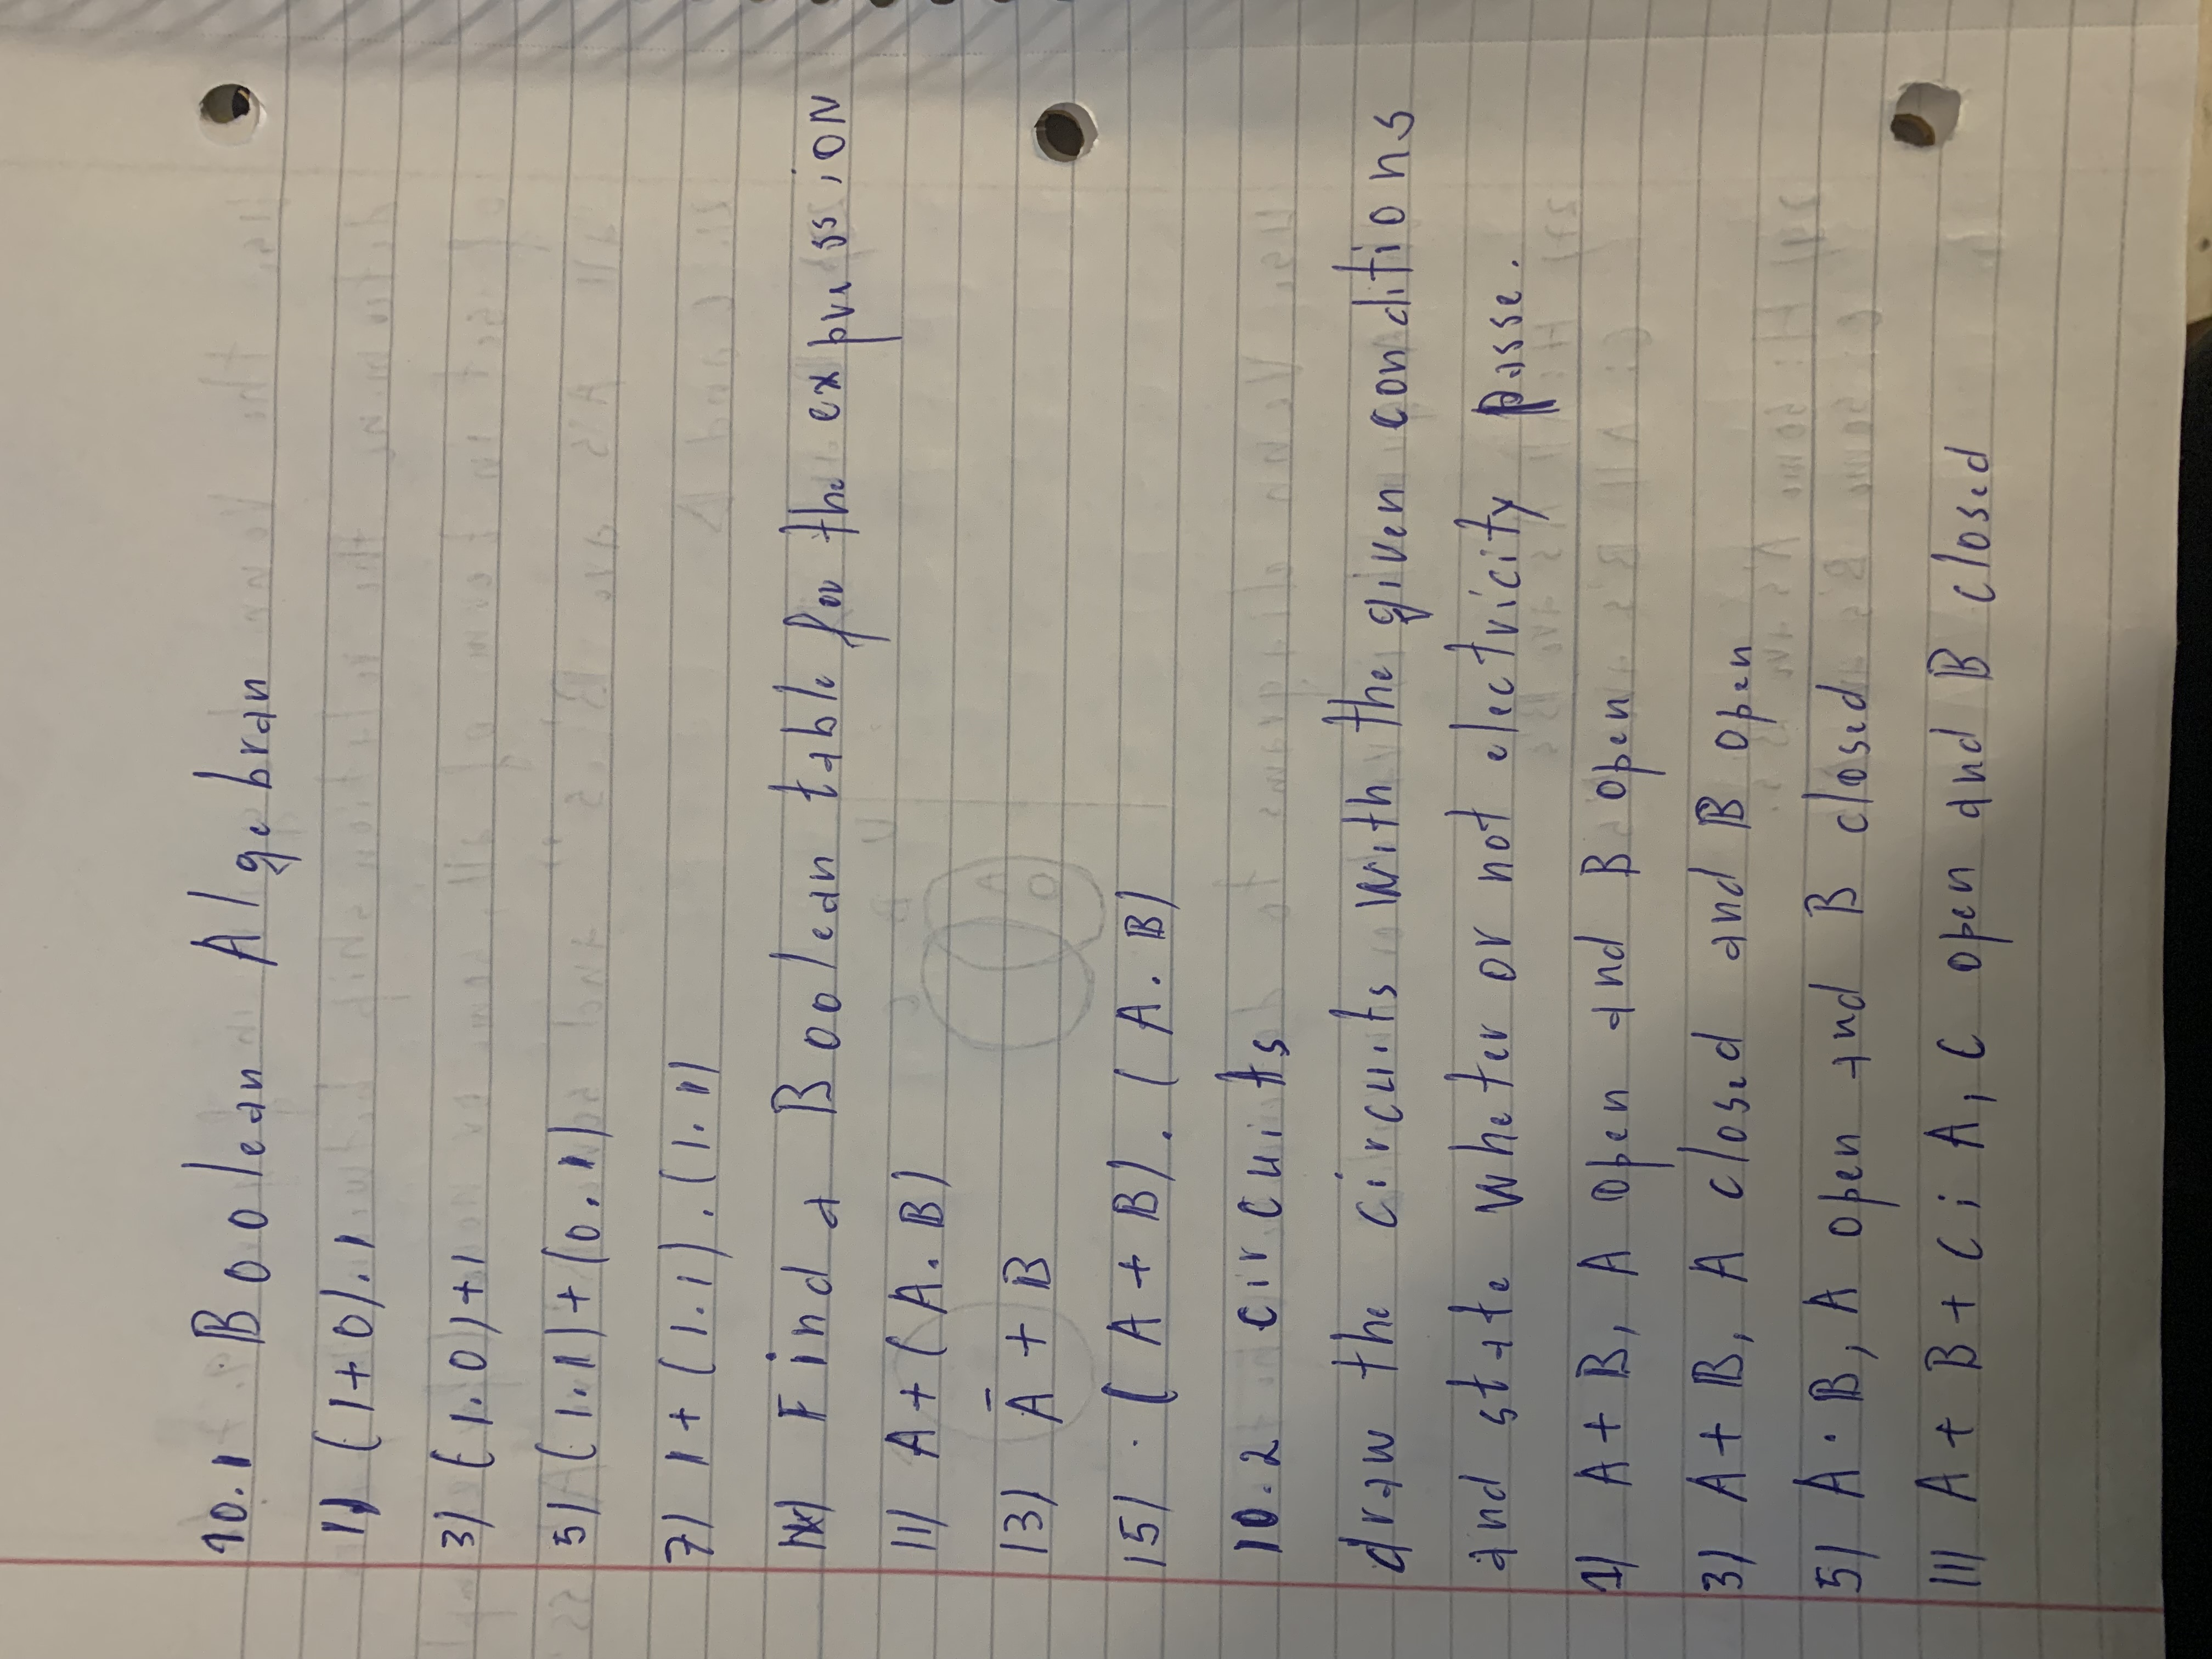 10.1 Boolean Algebran
1) (1+0).1
3) (1.0)+1
5) (1.1)+(0.1)
7) 1+(1.1).(1.1)
Find a Boolean table for the expression
11) A+(A.B)
13) Ā+B
15) . (A+B).(A.B)
10.2 circuits
draw the circuits with the given conditions
and state wheter or not electricity passe.
1) A+B, A open and B open
3) A+B, A closed and B open
5) A·B, A open and B closed
11) A+B+C; A, C open and B closed